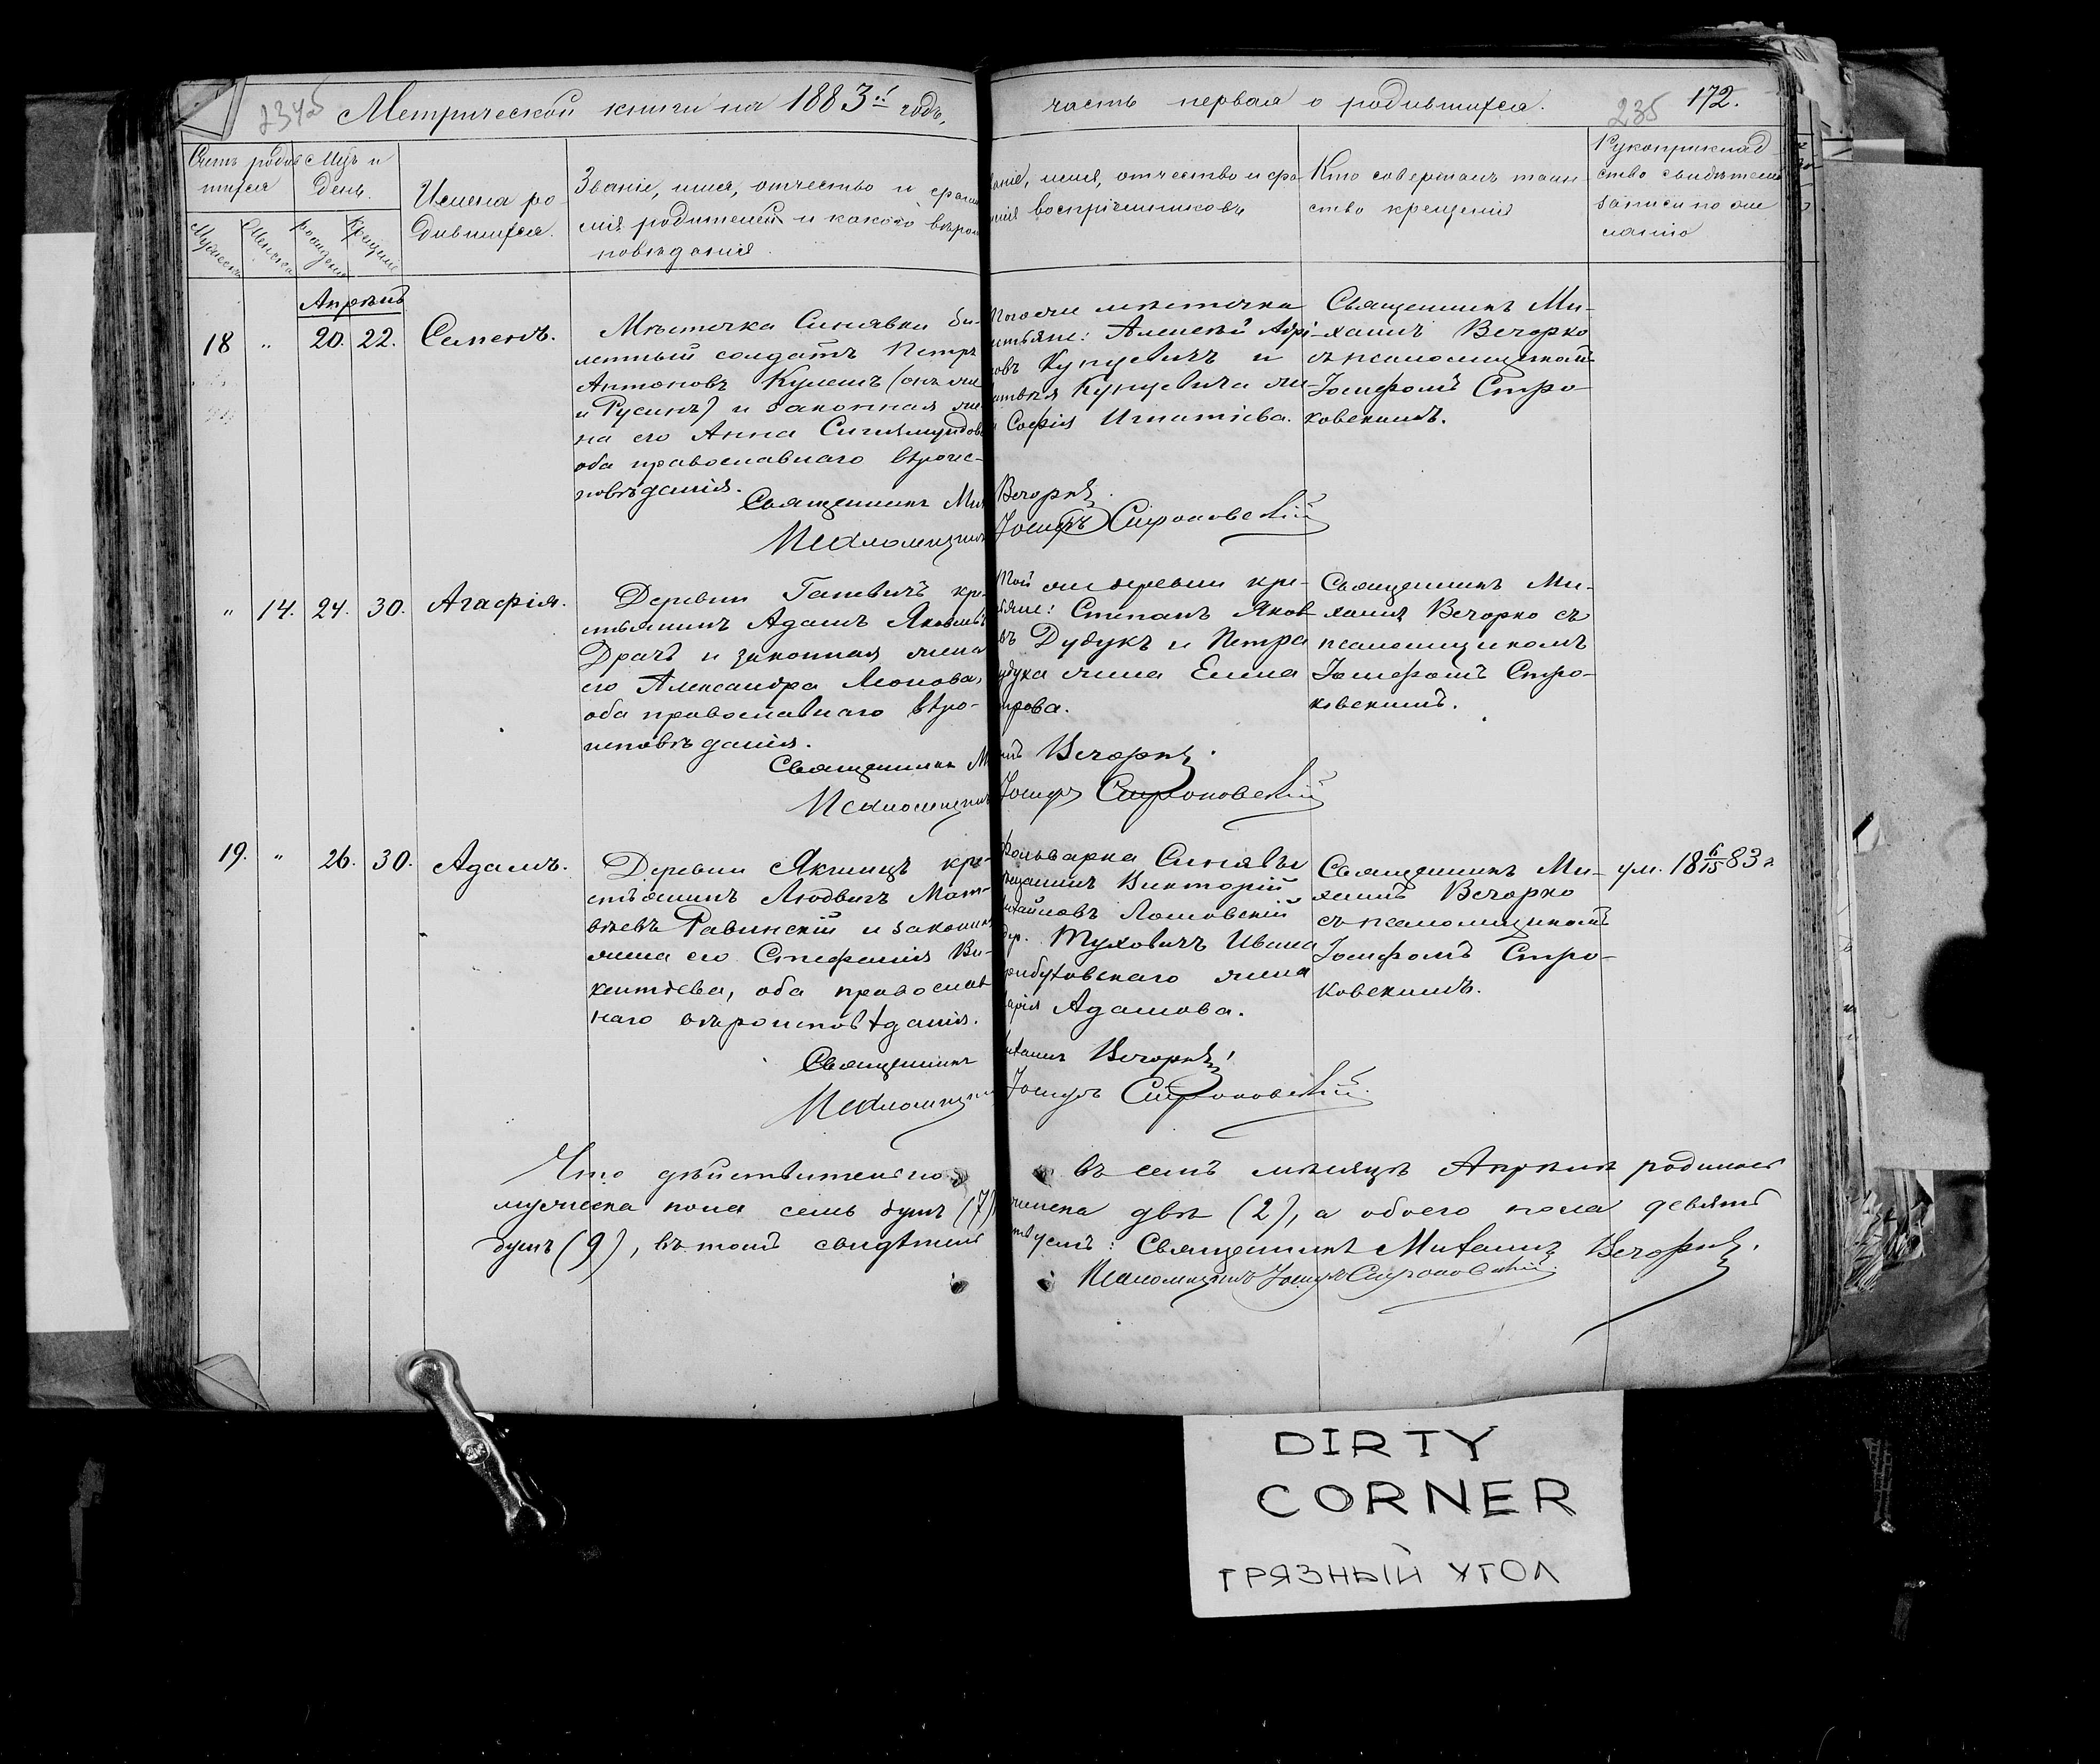 Метрической книги на 1883й годъ,
часть первая о родившихся.
235 172.
Счетъ родив
шихся
Мужеска
Женска
Мѣс. и
день.
рожденія
крещенія
Имена ро
дившихся.
Званіе, имя, отчество и фами
лія родителей и какого вѣрои
повѣданія.
аніе, имя, отчество и фа
милія воспріемниковъ
Кто совершалъ таин
ство крещенія
Рукоприклад
ство свидѣтелей
записи по же
ланію
Апрѣль
18 " 20. 22. Семенъ.
Мѣстечка Синявки би-
летный солдатъ Петръ
Антоновъ Кулешъ (онъ же
и Русинъ) и законная же
на его Анна Сигизмундова
оба православнаго вѣроис-
повѣданія.
Того же мѣстечка
стьяне: Алексѣй Адрі
овъ Купцевичъ и
Купцевича же-
Софія Игнатіева.
Священникъ Ми-
хаилъ Вечорко
съ псаломщикомъ
Іосифомъ Стро-
ковскимъ.
Священникъ Ми
Вечорко.
Псаломщикъ
Іосифъ Строковскій
" 14. 24. 30. Агафія.
Деревни Ганевичъ кре-
стьянинъ Адамъ Яковлевъ
Драчъ и законная жена
его Александра Леонова,
оба православнаго вѣро-
исповѣданія.
Той же деревни кре-
стьяне: Степанъ Яков
въ Дудукъ и Петра
удука жена Елена
трова.
Священникъ Ми-
хаилъ Вечорко съ
псаломщикомъ
Іосифомъ Стро-
ковскимъ.
Священникъ М
илъ Вечорко.
Псаломщикъ
Іосифъ Строковскій
19. " 26. 30. Адамъ.
Деревни Якшицъ кре-
стьянинъ Людвигъ Мат-
вѣевъ Равинскій и законная
жена его Стефанія Ви-
кентіева, оба православ
наго вѣроисповѣданія.
Фольварка Синявки
мѣщанинъ Викторій
Михайловъ Лошовскій
дер. Туховичъ Ивана
рибутовскаго жена
Марія Адамова.
Священникъ Ми-
хаилъ Вечорко
съ псаломщикомъ
Іосифомъ Стро-
ковскимъ.
ум. 18 6/15 83 г
Священникъ
ихаилъ Вечорко
Псаломщикъ
Іосифъ Строковскій.
Что дѣйствительно
въ семъ мѣсяцѣ Апрѣлѣ родилось
мужеска пола семь душъ (7)
женска двѣ (2), а обоего пола девять
душъ (9), въ томъ свидѣтель
ствуемъ: Священникъ Михаилъ Вечорко.
Псаломщикъ Іосифъ Строковскій.
DIRTY
CORNER
ГРЯЗНЫЙ УГОЛ